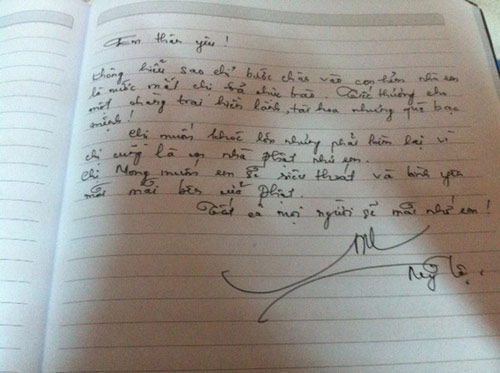 Em thân yêu!
Không hiểu sao chỉ bước chân vào con hẻm nhà em
là nước mắt chị trào. Tiếc thương cho
một chàng trai hiền lành, tài hoa nhưng quá bạc
mệnh!
Chị muốn khóc lớn nhưng phải kìm lại vì
chị cũng là con nhà Phật như em.
Chị Mong muốn em sẽ siêu thoát và bình yên
mãi mãi bên cửa Phật.
Tất cả mọi người sẽ mãi nhớ em!
Mỹ Lệ